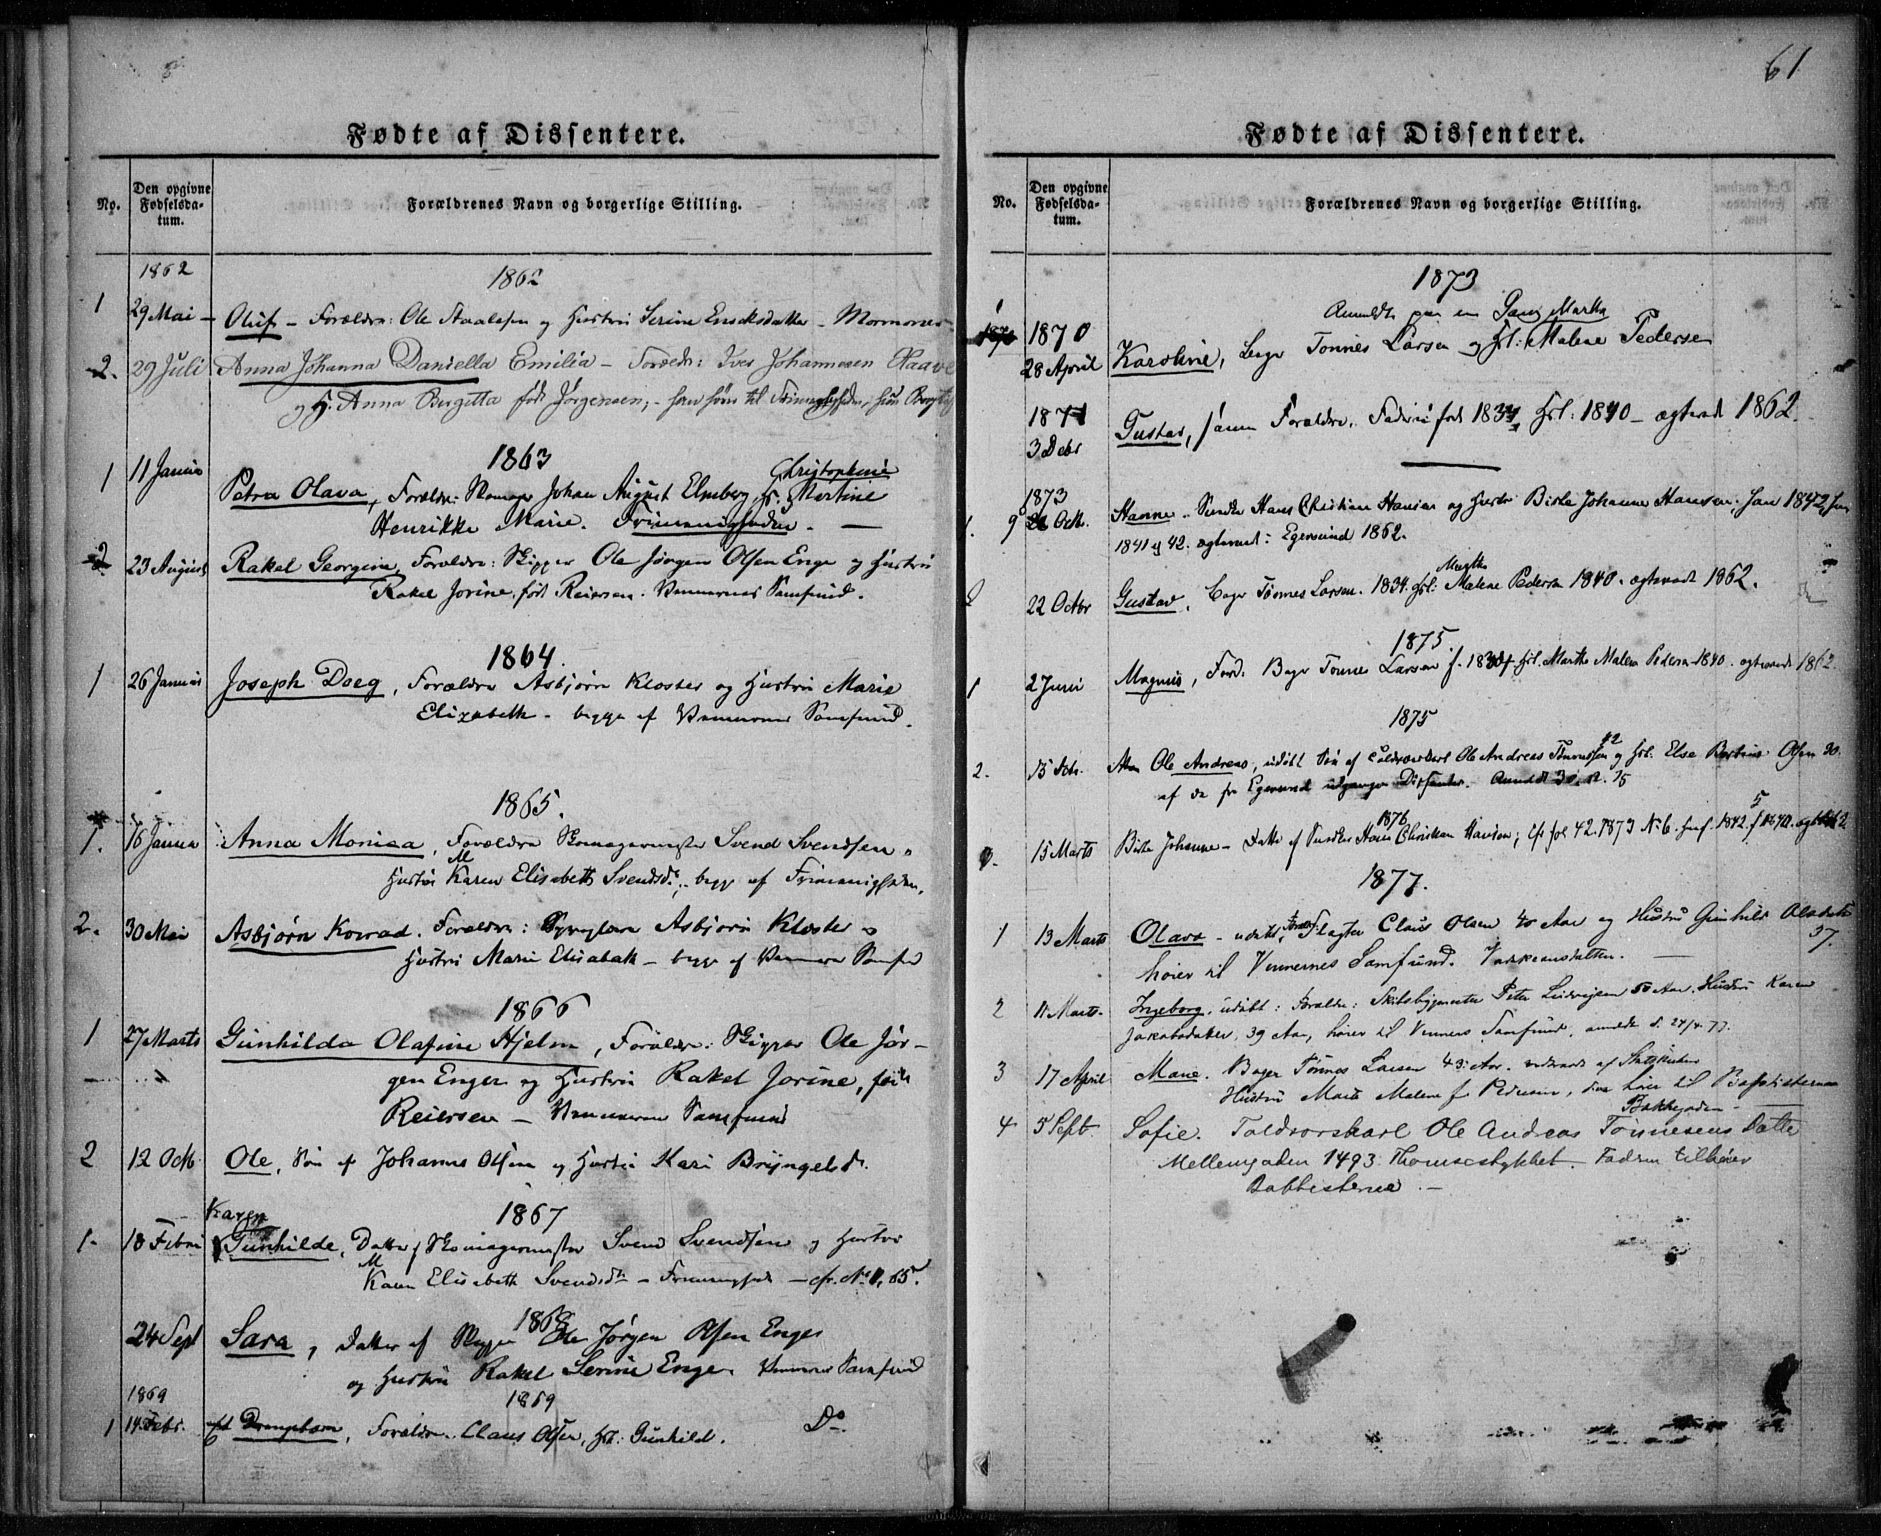 Fødte af Dissentere.
No.
Den opgivne Fødselsda-tum.
Forældrenes Navn og borgerlige Stilling.
1862
1862
1 29 Mai Oluf – Forældre: Ole og Hustru Serine – Mormoner
2. 29 Juli Anna Johanna Daniella Emilia – Foræld: Iver Johannesen
og H. Anna Birgitta født Jørgensen, – han hører til Frimenigheden, hun
1863
1 11 Januar Petra Olava, Forældre: Skomager Johan August Elmberg, H. Christophine Martine
Henrikke Marie. Frimenigheden. —
2 23 August Rakel Georgine, Forældre: Skipper Ole Jørgen Olsen Enge og Hustru
Rakel Jorine, født Reiersen. Vennernes Samfund.
1864.
1 26 Januar Joseph Doeg, Forældre Asbjørn Kloster og Hustru Marie
Elizabeth – begge af Vennernes Samfund.
1865.
1. 16 Januar Anna Monica, Forældre Skomagermester Svend Svendsen
Hustru Karen M Elisabeth Svendsd., – begge af Frimenigheden.
2. 30 Mai Asbjørn Konrad. Forældre: Asbjørn Kloster
Hustru Marie Elisabeth – begge af Vennernes Samfund
1866
1 27 Marts Gunhilda Olafine Hjelm, Forældre: Skipper Ole Jør-
gen Enger og Hustru Rakel Jorine, født
Reiersen – Vennernes Samfund
2 12 Octb. Ole, Søn af Johannes Olsen og Hustru Kari Bryngelsd.
1867
Karen
1. 18 Febr Gunhilde, Datter af Skomagermester Svend Svendsen og Hustru
Karen M Elisabeth Svendsd. – Frimenighed – cfr. No 1, 65.
1868
24 Sept Sara, Datter af Skipper Ole Jørgen Olsen Enger
og Hustru Rakel Serine Enge. Vennernes Samfund
1869
1869
1 14 Febr. Drengebarn, Forældre. Claus Olsen, Hst: Gunhild. Do.
61
Fødte af Dissentere.
No.
Den opgivne Fødselsda-tum.
Forældrenes Navn og borgerlige Stilling.
1873
Anmeldt paa en Gang Martha
1 1870
28 April Karoline, Bager Tønnes Larsen og Hst: Malene Pedersen
1871
3 Decbr Gustav, samme Forældre. Faderen født 1834, Hst: 1840 – ægteviet 1862.
1873
1. 9 Octb. Hanne. Hans Christian Hansen og Hustru Birte Johanne Hansen; han 1842, hun
1841 42. ægteviet: Egersund 1862.
2 22 Octbr Gustav. Bager Tønnes Larsen. 1834. Hst: Martha Malene Pedersen 1840. ægteviet 1862.
1875.
1 2 Juni Magnus, Foræld. Bager Tønnes Larsen f. 1834 Hst. Martha Malene Pedersen 1840. ægteviet 1862.
1875
2. Ole Andreas, udøbt Søn af Toldrorskarl Ole Andreas Tønnessen 42 og Hst. Else Bertine Olsen 30.
af de fra Egersund udgangne Dissenter. Anmeldt 30.
1876
15 Marts Birte Johanne – Datter af Hans Christian Hansen; cf fol 42. 1873 No 6. han f. 1842.
1877.
1 13 Marts Olava – udøbt, Claus Olsen 40 Aar og Hustru Gunhild Olsdatter
37.
hører til Vennernes Samfund.
2 11 Marts. Ingeborg, udøbt: Foreldre: Skibsbygmester Peter Ludvigsen 50 Aar. Hustru Karen
Jakobsdatter, 39 Aar, hører til Venners Samfund, anmeldt d. 24/4 77.
3 17 April Marie. Bager Tønnes Larsen 43 Aar. udtraadt af Statskirken
Hustru Marta Malene f Pedersen, den hører til Baptisterne
Bakkegaden –
4 5 Sept. Sofie. Toldrorskarl Ole Andreas Tønnesens Datter
Mellemgaden 1493. Thomsestykket. Fadren tilhører
Babtisterne. –